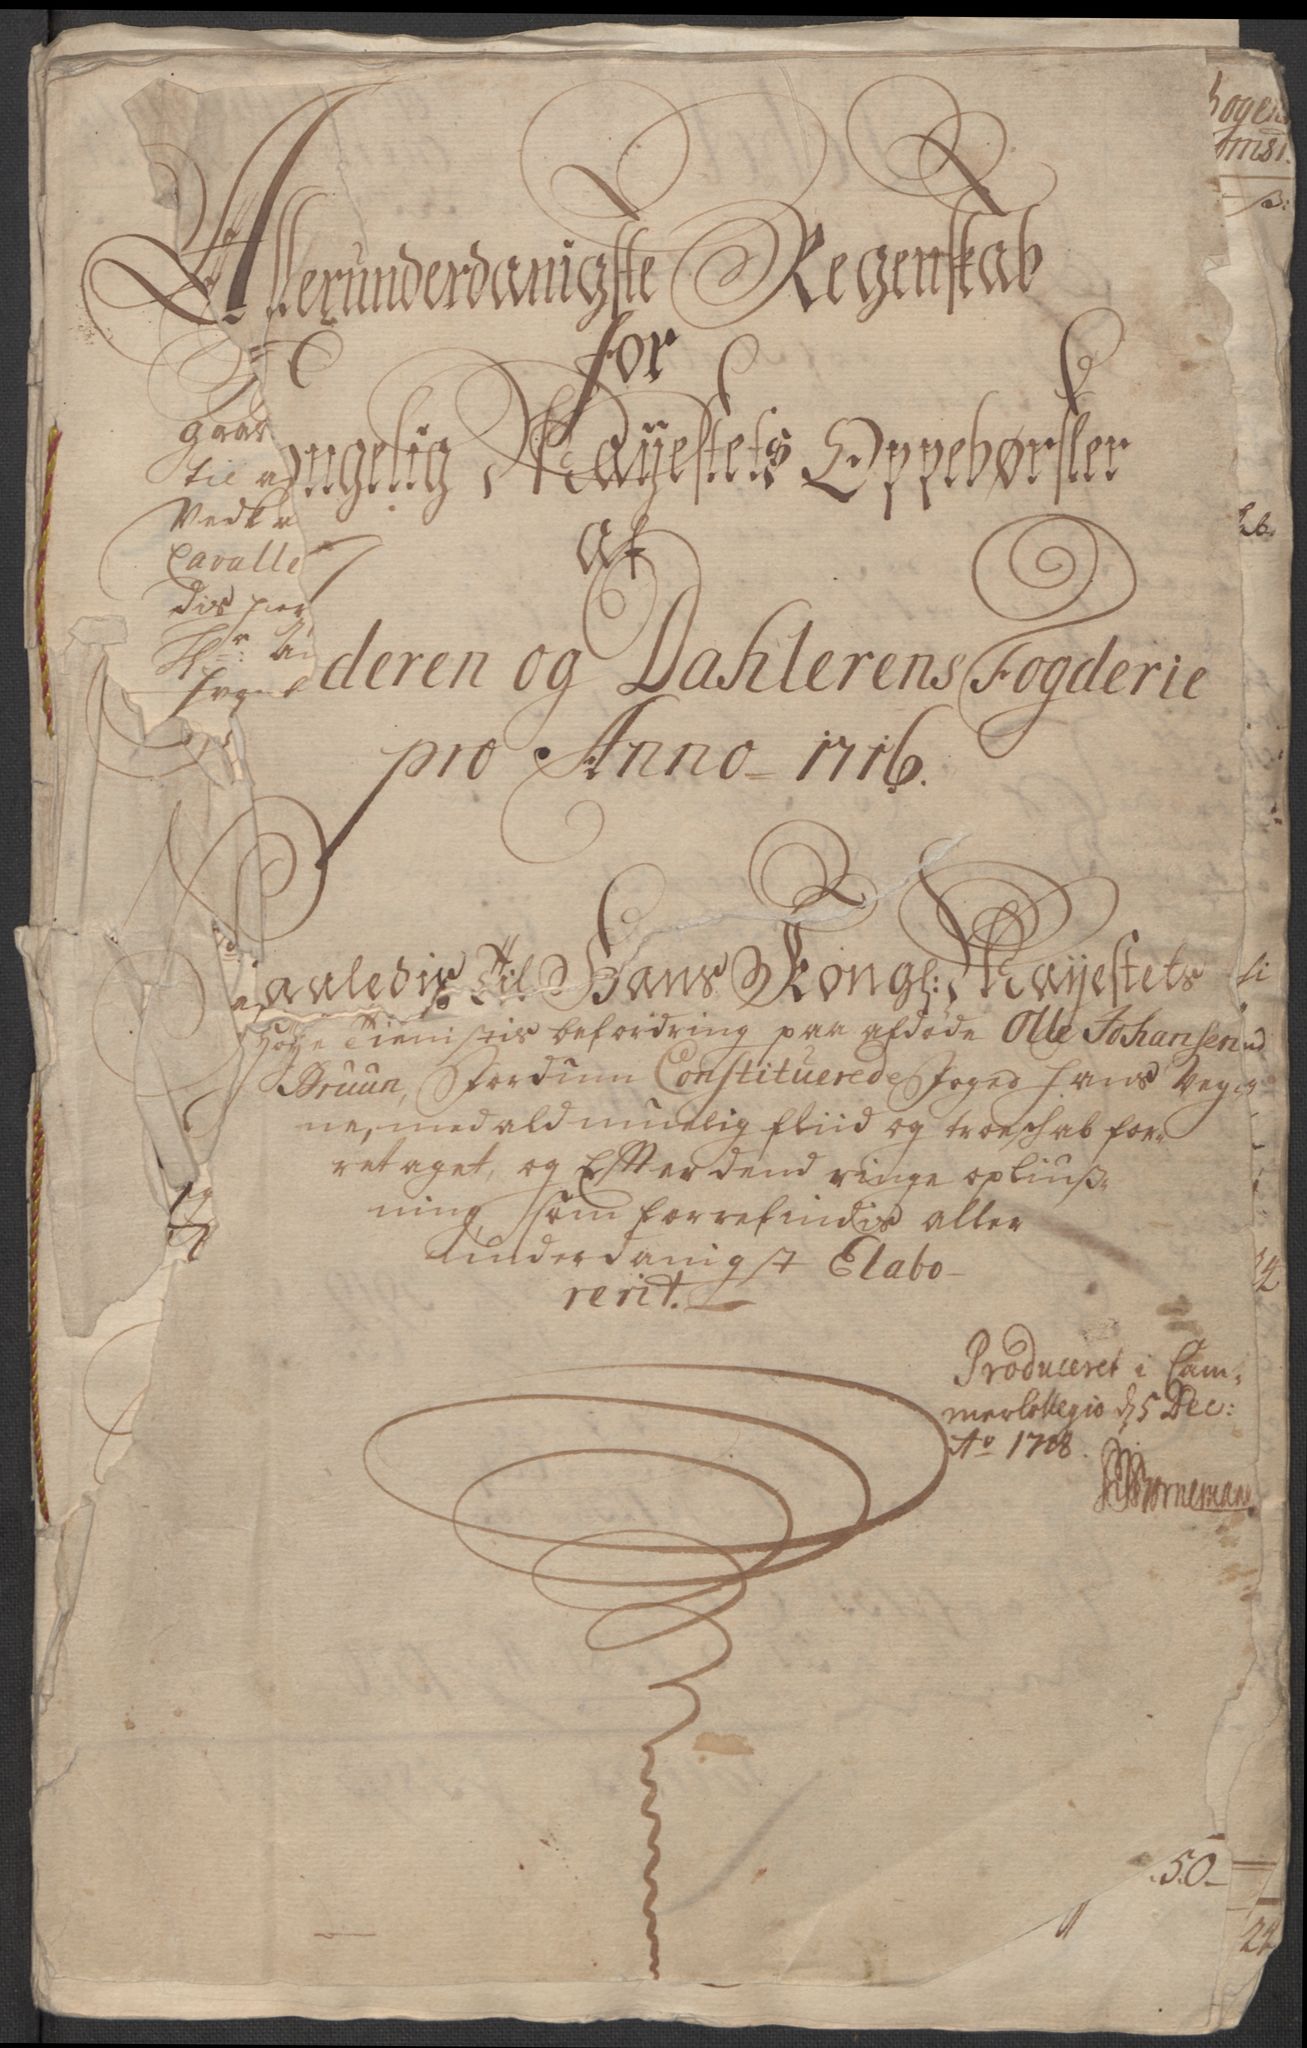 Allerunderdanigste Regenskab
for
ongelig Mayestets Oppebørsler
af
deren og Dahlerens Fogderie
pro Anno 1716.
aaledis Til Hans Kongl: Mayestets
Høye Tienistis befordring paa afdøde Olle Johansen
Bruun, fordum Constituerede foged hans Veg
ne, med ald muelig fliid og troeschab for-
retaget, og Effter dend ringe opliuß-
ning, som forrefindis aller
underdanigst Elabo-
rerit.
Produceret i Cam-
mer Collegio d 5 Dec:
Ao 1718.
Bornemann
gaar
til
Vedk
Cavalle
dis per
50
24